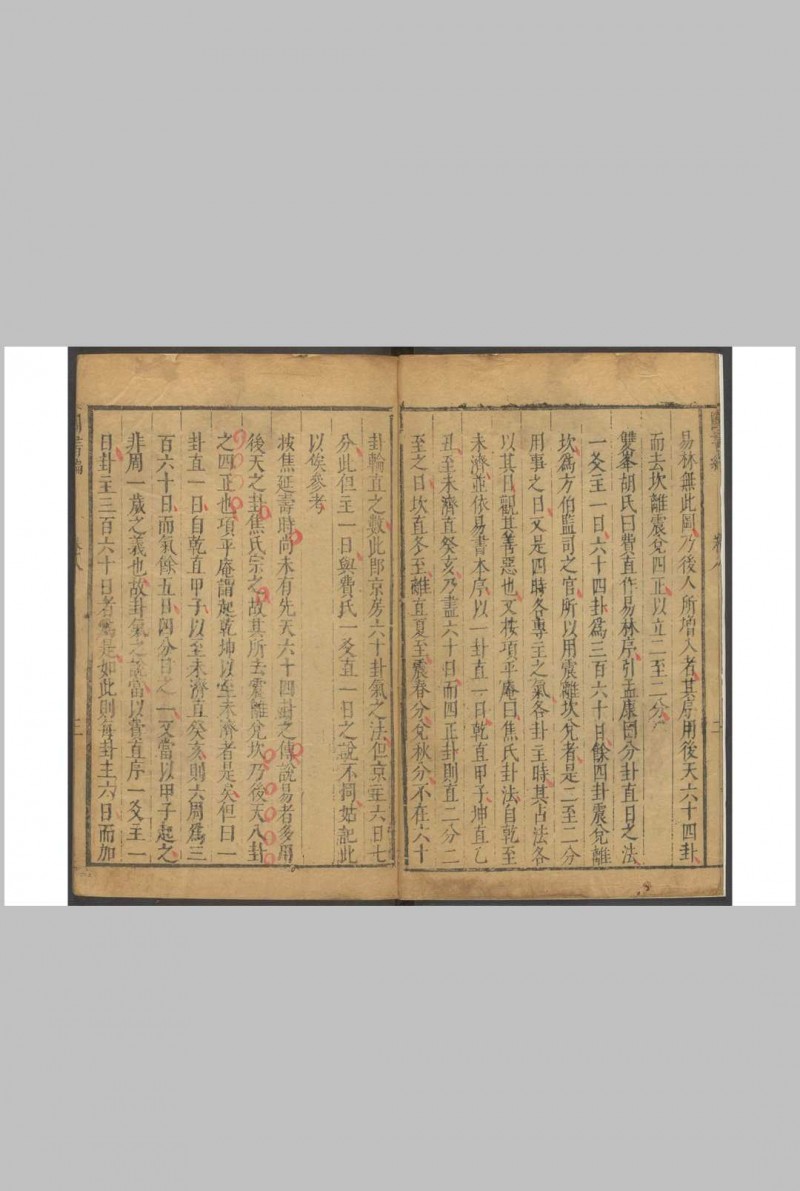 易林無此圖乃後人所增入者其序用後天六十四卦
而去坎離震兌四正以立二至二分
雙峯胡氏曰費直作易林序引孟康曰分卦直日之法
一爻主一日六十四卦爲三百六十日餘四卦震兌離
坎爲方伯監司之官所以用震離坎兌者是二至二分
用事之日又是四時各專主之氣各卦主時其占法各
以其日觀其善惡也又按項平庵曰焦氏卦法自乾至
未濟並依易書本序以一卦直一日乾直甲子坤直乙
丑至未濟直癸亥乃盡六十日而四正卦則直二分二
至之日坎直冬至離直夏至震春分兌秋分不在六十
卷八
卦輪直之數此卽京房六十卦氣之法但京主六日七
分此但主一日與費氏一爻直一日之說不同姑記此
以俟參考
按焦延壽時尚未有先天六十四卦之傳說易者多用
後天之卦焦氏宗之故其所去震離兌坎乃後天八卦
之四正也項平庵謂起乾坤以至未濟者是矣但曰一
卦直一日自乾直甲子以至未濟直癸亥則六周爲三
百六十日而氣餘五日四分日之一又當以甲子起之
非周一歲之義也故卦氣之說當以費直序一爻主一
日卦主三百六十日者爲是如此則每卦主六日而加
圖書編
卷八